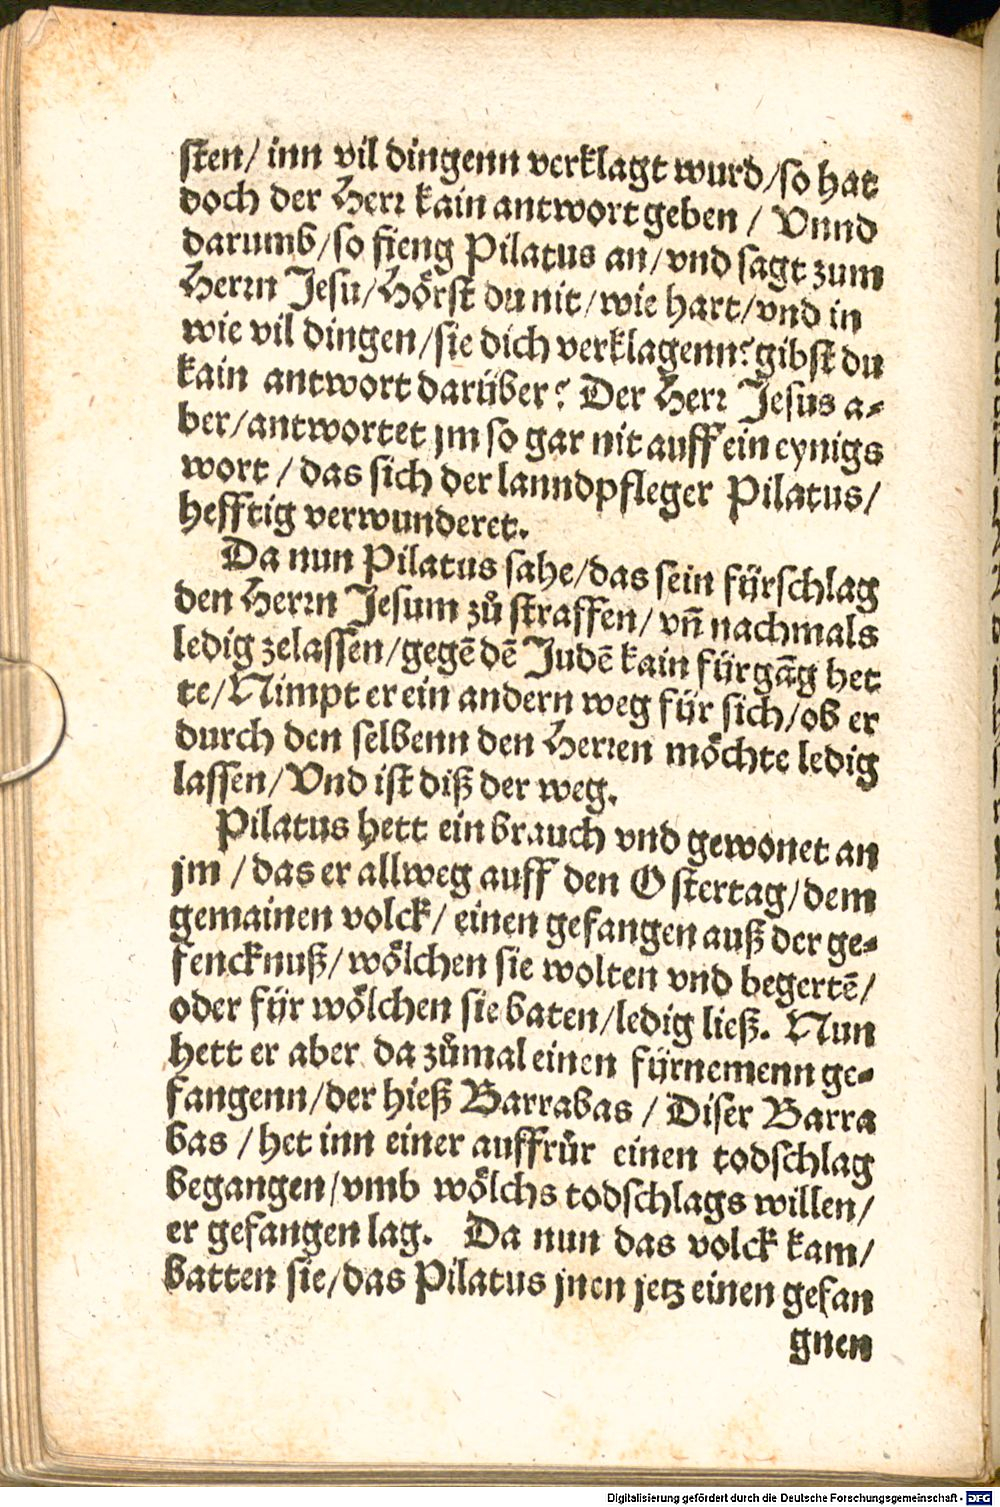 sten/ inn vil dingenn verklagt wurd/so hat
doch der Herr kain antwort geben / Vnnd
darumb/so fieng Pilatus an/vnd sagt zum
Herrn Jesu/Hörst du nit/wie hart/vnd in
wie vil dingen/sie dich verklagenn? gibst du
kain antwort darüber? Der Herr Jesus a-
ber/antwortet jm so gar nit auff ein eynigs
wort / das sich der lanndpfleger Pilatus/
hefftig verwunderet.
Da nun Pilatus sahe/das sein fürschlag
den Herrn Jesum zů straffen/ vñ nachmals
ledig zelassen/gegē dē Judē kain fürgãg het
te/Nimpt er ein andern weg für sich/ob er
durch den selbenn den Herren möchte ledig
lassen/Vnd ist diß der weg.
Pilatus hett ein brauch vnd gewonet an
jm /das er allweg auff den Ostertag/dem
gemainen volck/ einen gefangen auß der ge-
fencknuß/wölchen sie wolten vnd begertē/
oder für wölchen sie baten/ledig ließ. Nun
hett er aber da zůmal einen fürnemenn ge-
fangenn/der hieß Barrabas / Diser Barra
bas /het inn einer auffrůr einen todschlag
begangen/vmb wölchs todschlags willen/
er gefangen lag. Da nun das volck kam/
batten sie/das Pilatus jnen jetz einen gefan
gnen
Digitalisierung gefördert durch die Deutsche Forschungsgemeinschaft - DFG